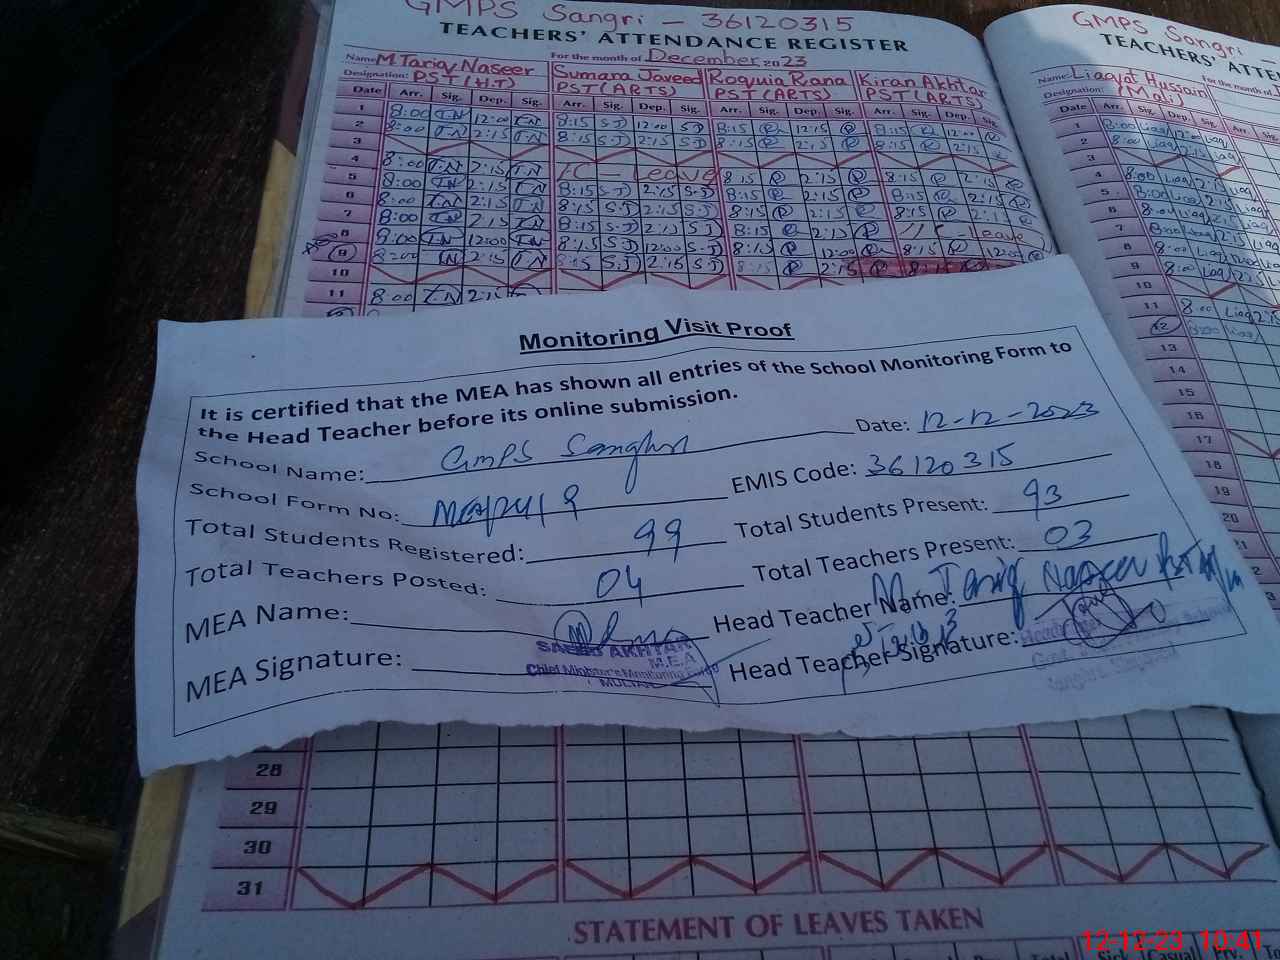 GMPS Sangri - 36120315
TEACHERS' ATTENDANCE REGISTER
For the month of December 2023
Name M Tariq Naseer Sumara Javeed Roquia Rana Kiran Akhtar
Designation: PST (H.T) PST (ARTS) PST (ARTS) PST (ARTS)
Date Arr. Sig. Dep. Sig. Arr. Sig. Dep. Sig. Arr. Sig. Dep. Sig. Arr. Sig. Dep. Sig.
1 8:00 T.N 12:00 T.N 8:15 S.J 12:00 S.J 8:15 R 12:15 R 8:15 R 12:00 R
2 8:00 T.N 2:15 T.N 8:15 S.J 2:15 S.J 8:15 R 2:15 R 8:15 R 2:15
3
4 8:00 T.N 2:15 T.N 1 C - Leave 8:15 R 2:15 R 8:15 R 2:15 R
5 8:00 T.N 2:15 T.N 8:15 S.J 2:15 S.J 8:15 R 2:15 R 8:15 R 2:15 R
6 8:00 T.N 2:15 T.N 8:15 S.J 2:15 S.J 8:15 R 2:15 R 8:15 R 2:15 R
7 8:00 T.N 2:15 T.N 8:15 S.J 2:15 S.J 8:15 R 2:15 R C - Leave
8 8:00 T.N 12:00 T.N 8:15 S.J 12:00 S.J 8:15 R 12:00 R 8:15 R 12:00
9 8:00 T.N 2:15 T.N 8:15 S.J 2:15 S.J 8:15 R 2:15 R 8:15
10
11 8:00 T.N 2:15
GMPS Sangri -
TEACHERS' ATTE
Name: Liaqat Hussain
Designation: (Mali)
Date Arr. Sig. Dep. Sig. Arr Sig.
1 8:00 Liaq 12:00 Liaq
2 8:00 Liaq 2:15 Liaq
3
4 8:00 Liaq 2:15 Liaq
5 8:00 Liaq 2:15 Liaq
6 8:00 Liaq 2:15 Liaq
7 8:00 Liaq 2:15 Liaq
8 8:00 Liaq 12:00 Liaq
9 8:00 Liaq 2:15
10
11 8:00 Liaq 2:15
12 8:00 Liaq
13
14
15
16
17
18
19
20
Monitoring Visit Proof
It is certified that the MEA has shown all entries of the School Monitoring Form to
the Head Teacher before its online submission.
Date: 12-12-2023
School Name: GMPS Sanghri
EMIS Code: 36120315
School Form No:
Total Students Registered: 99 Total Students Present: 93
Total Teachers Posted: 04 Total Teachers Present: 03
MEA Name: Head Teacher Name: M. Tariq Naseer PST
MEA Signature: Head Teacher Signature:
SAEED AKHTAR
M.E.A
Chief Minister's Monitoring Force
MULTAN
28
29
30
31
STATEMENT OF LEAVES TAKEN
12-12-23 10:41